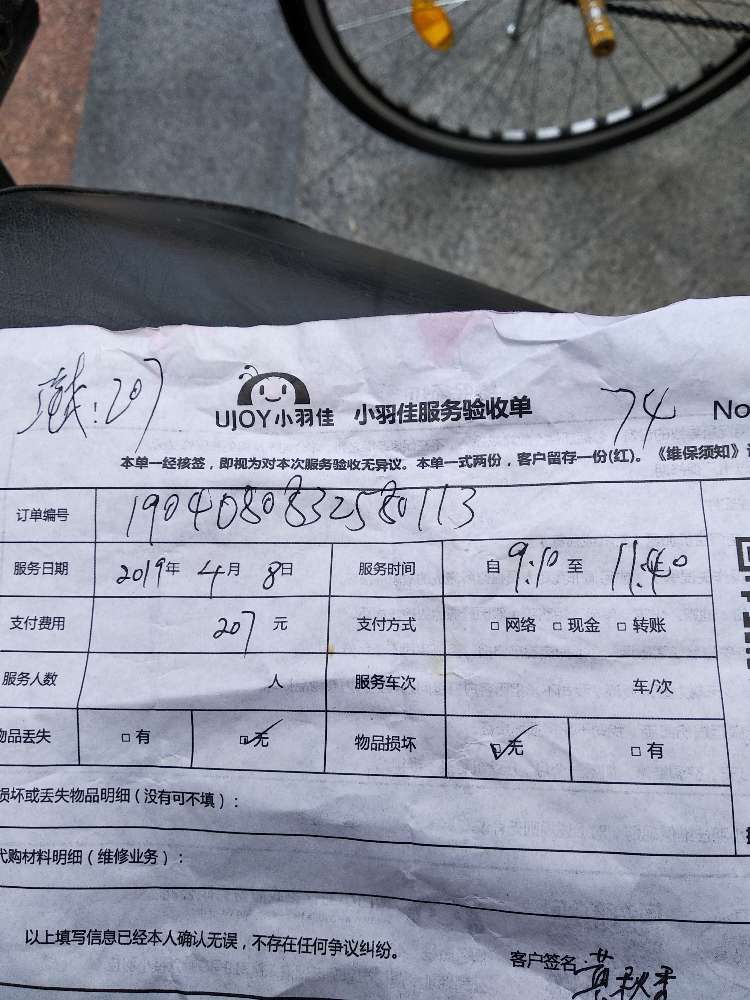 207
UJOY小羽佳 小羽佳服务验收单 74 No
本单一经核签，即视为对本次服务验收无异议。本单一式两份，客户留存一份(红)。《维保须知》
订单编号 1904080832580113
服务日期 2019年 4月 8日 服务时间 自 9:10 至 11:40
支付费用 207 元 支付方式 □ 网络 □ 现金 □ 转账
服务人数 人 服务车次 车/次
物品丢失 □ 有 □ 无 物品损坏 □ 无 □ 有
损坏或丢失物品明细（没有可不填）：
代购材料明细（维修业务）：
以上填写信息已经本人确认无误，不存在任何争议纠纷。
客户签名: 黄秋香